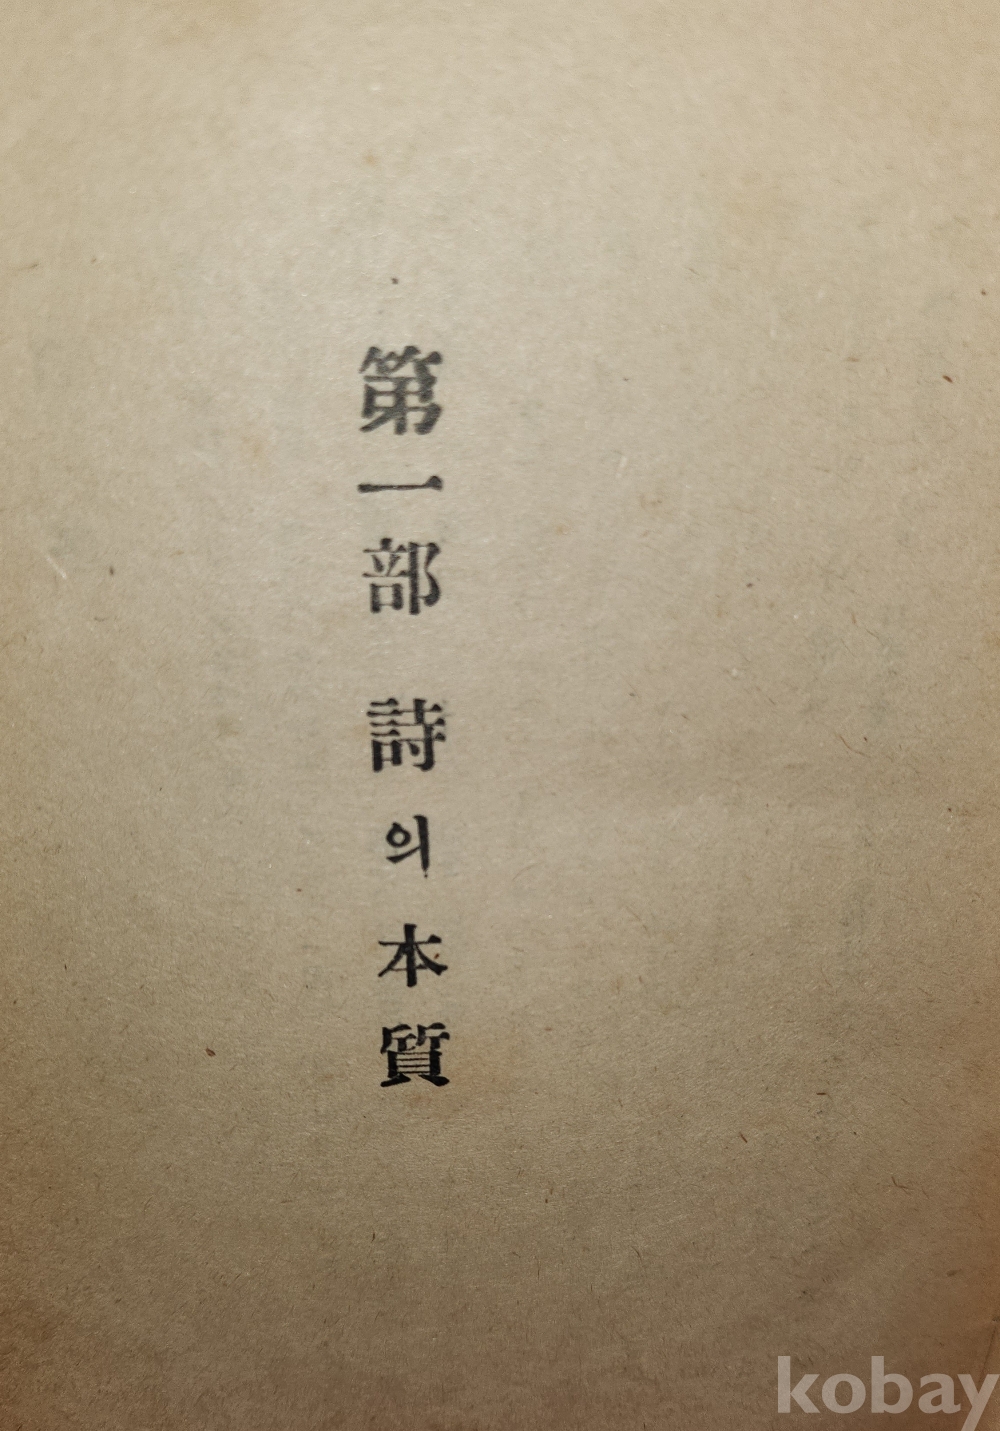 第一部 詩의 本質
kobay